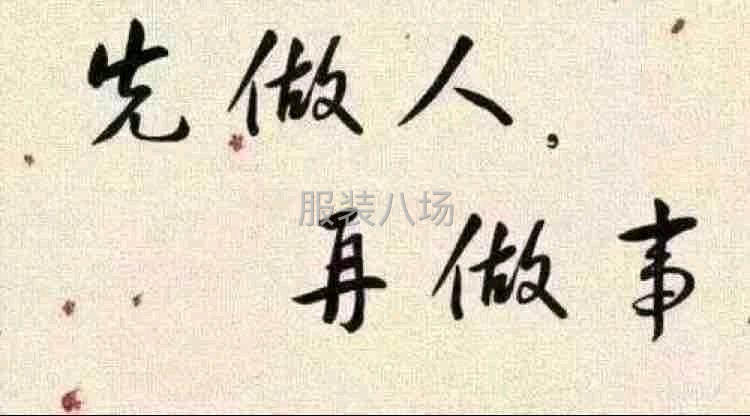 先做人,
服装八场
再做事